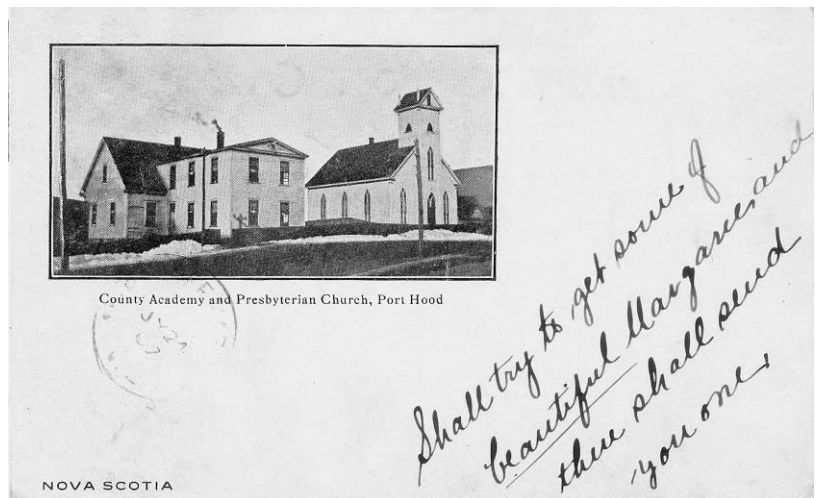 County Academy and Presbyterian Church, Port Hood
Shall try to get some of
beautiful Margaree, and
then shall send
you one.
NOVA SCOTIA